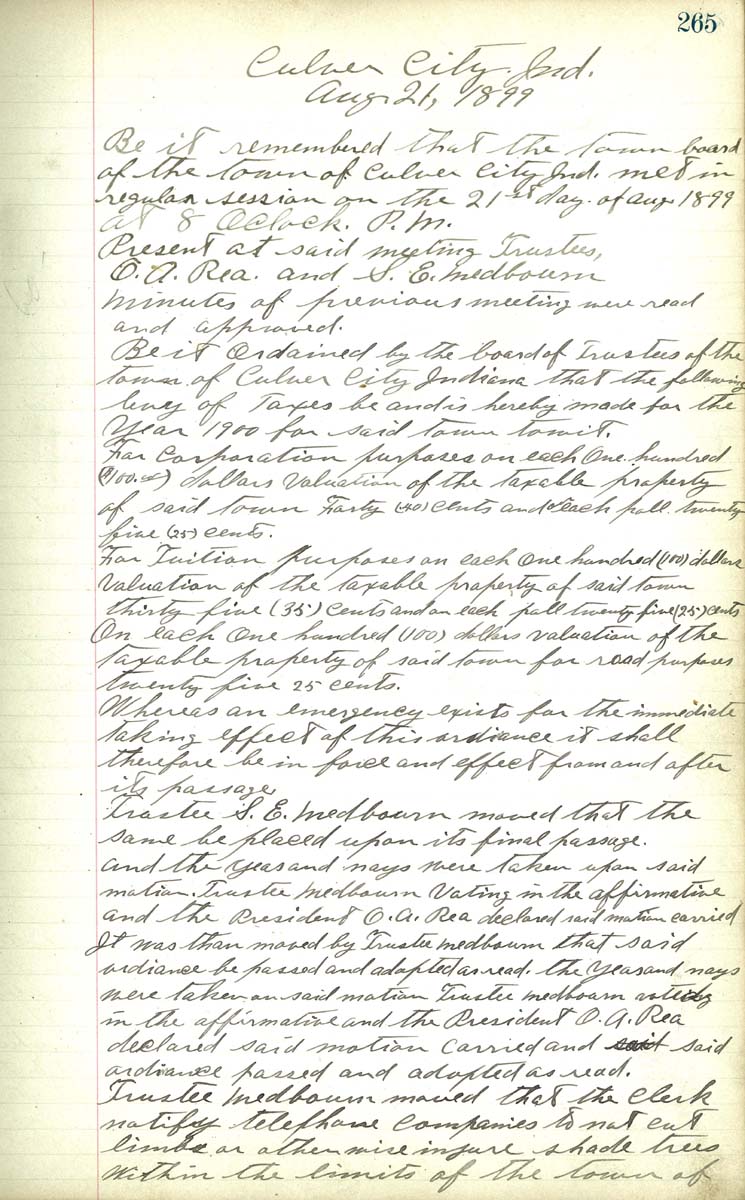 265
Culver City. Ind.
Aug 21, 1899
Be it remembered that the town board
of the town of Culver City Ind. met in
regular session on the 21st day of Aug 1899
at 8 Oclock. P.M.
Present at said meeting Trustees,
O. A. Rea. and S. E. Medbourn
minutes of previous meeting were read
and approved.
Be it Ordained by the board of Trustees of the
town of Culver City Indiana that the following
levy of Taxes be and is hereby made for the
Year 1900 for said town towit.
For Corporation purposes on each One hundred
($100.00) dollars Valuation of the taxable property
of said town Forty (40) cents and of each poll twenty
five (25) cents.
For Tuition purposes on each One hundred (100) dollars
Valuation of the taxable property of said town
thirty five (35) cents and on each poll twenty five (25) cents
On each One hundred (100) dollars valuation of the
taxable property of said town for road purposes
twenty five 25 cents.
Whereas an emergency exists for the immediate
taking effect of this ordiance it shall
therefore be in force and effect from and after
its passage
Trustee S. E. Medbourn moved that the
same be placed upon its final passage.
and the yeas and nays were taken upon said
motion. Trustee Medbourn Voting in the affirmative
and the President O. A. Rea declared said motion carried
It was than moved by Trustee Medbourn that said
ordiance be passed and adopted as read. the Yeas and nays
were taken on said motion Trustee Medbourn voting
in the affirmative and the President O. A. Rea
declared said motion carried and said said
ordiance passed and adopted as read.
Trustee Medbourn moved that the Clerk
notify telephone Companies to not cut
limbs or otherwise injure shade trees
within the limits of the town of